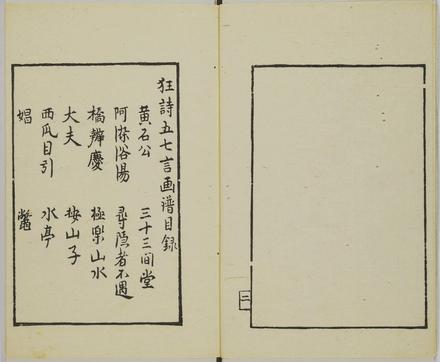 狂詩五七言画譜目録
黄石公 三十三間堂
阿深浴湯 尋隠者不遇
橋辨慶 極楽山水
大夫 按山子
西瓜目引 水亭
娼 鼈
二